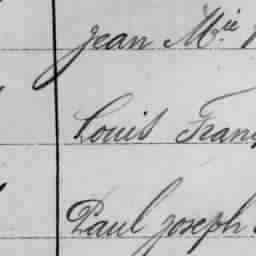 Jean M.ie
Louis Franç
Paul Joseph